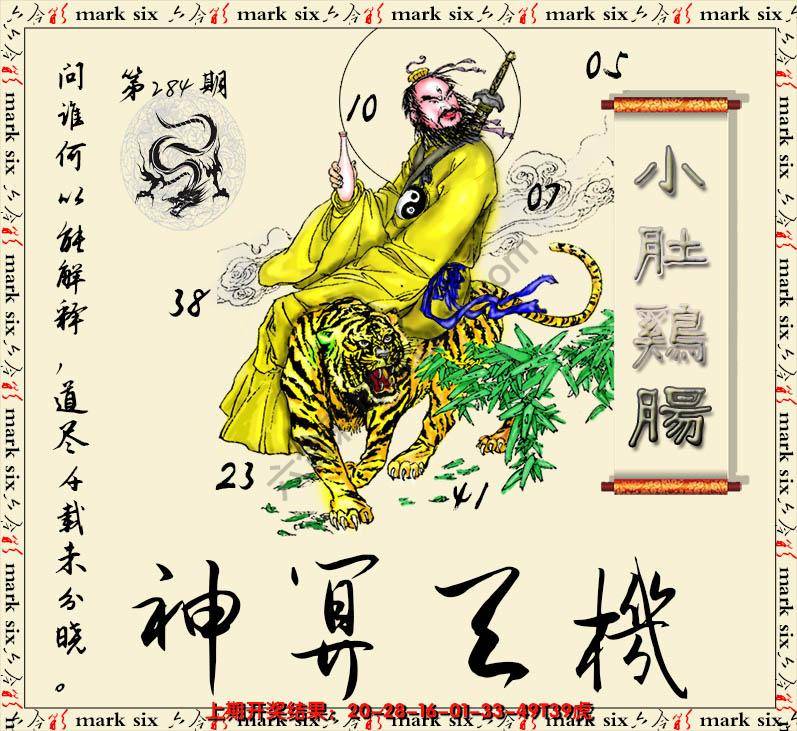 六合彩 mark six 六合彩 mark six 六合彩 mark six 六合彩 mark six 六合彩 mark six
问谁何以能解释，道尽千载未分晓。
第284期
10
05
07
38
23
41
小肚鷄腸
神算天機
上期开奖结果：20-28-16-01-33-49T39虎